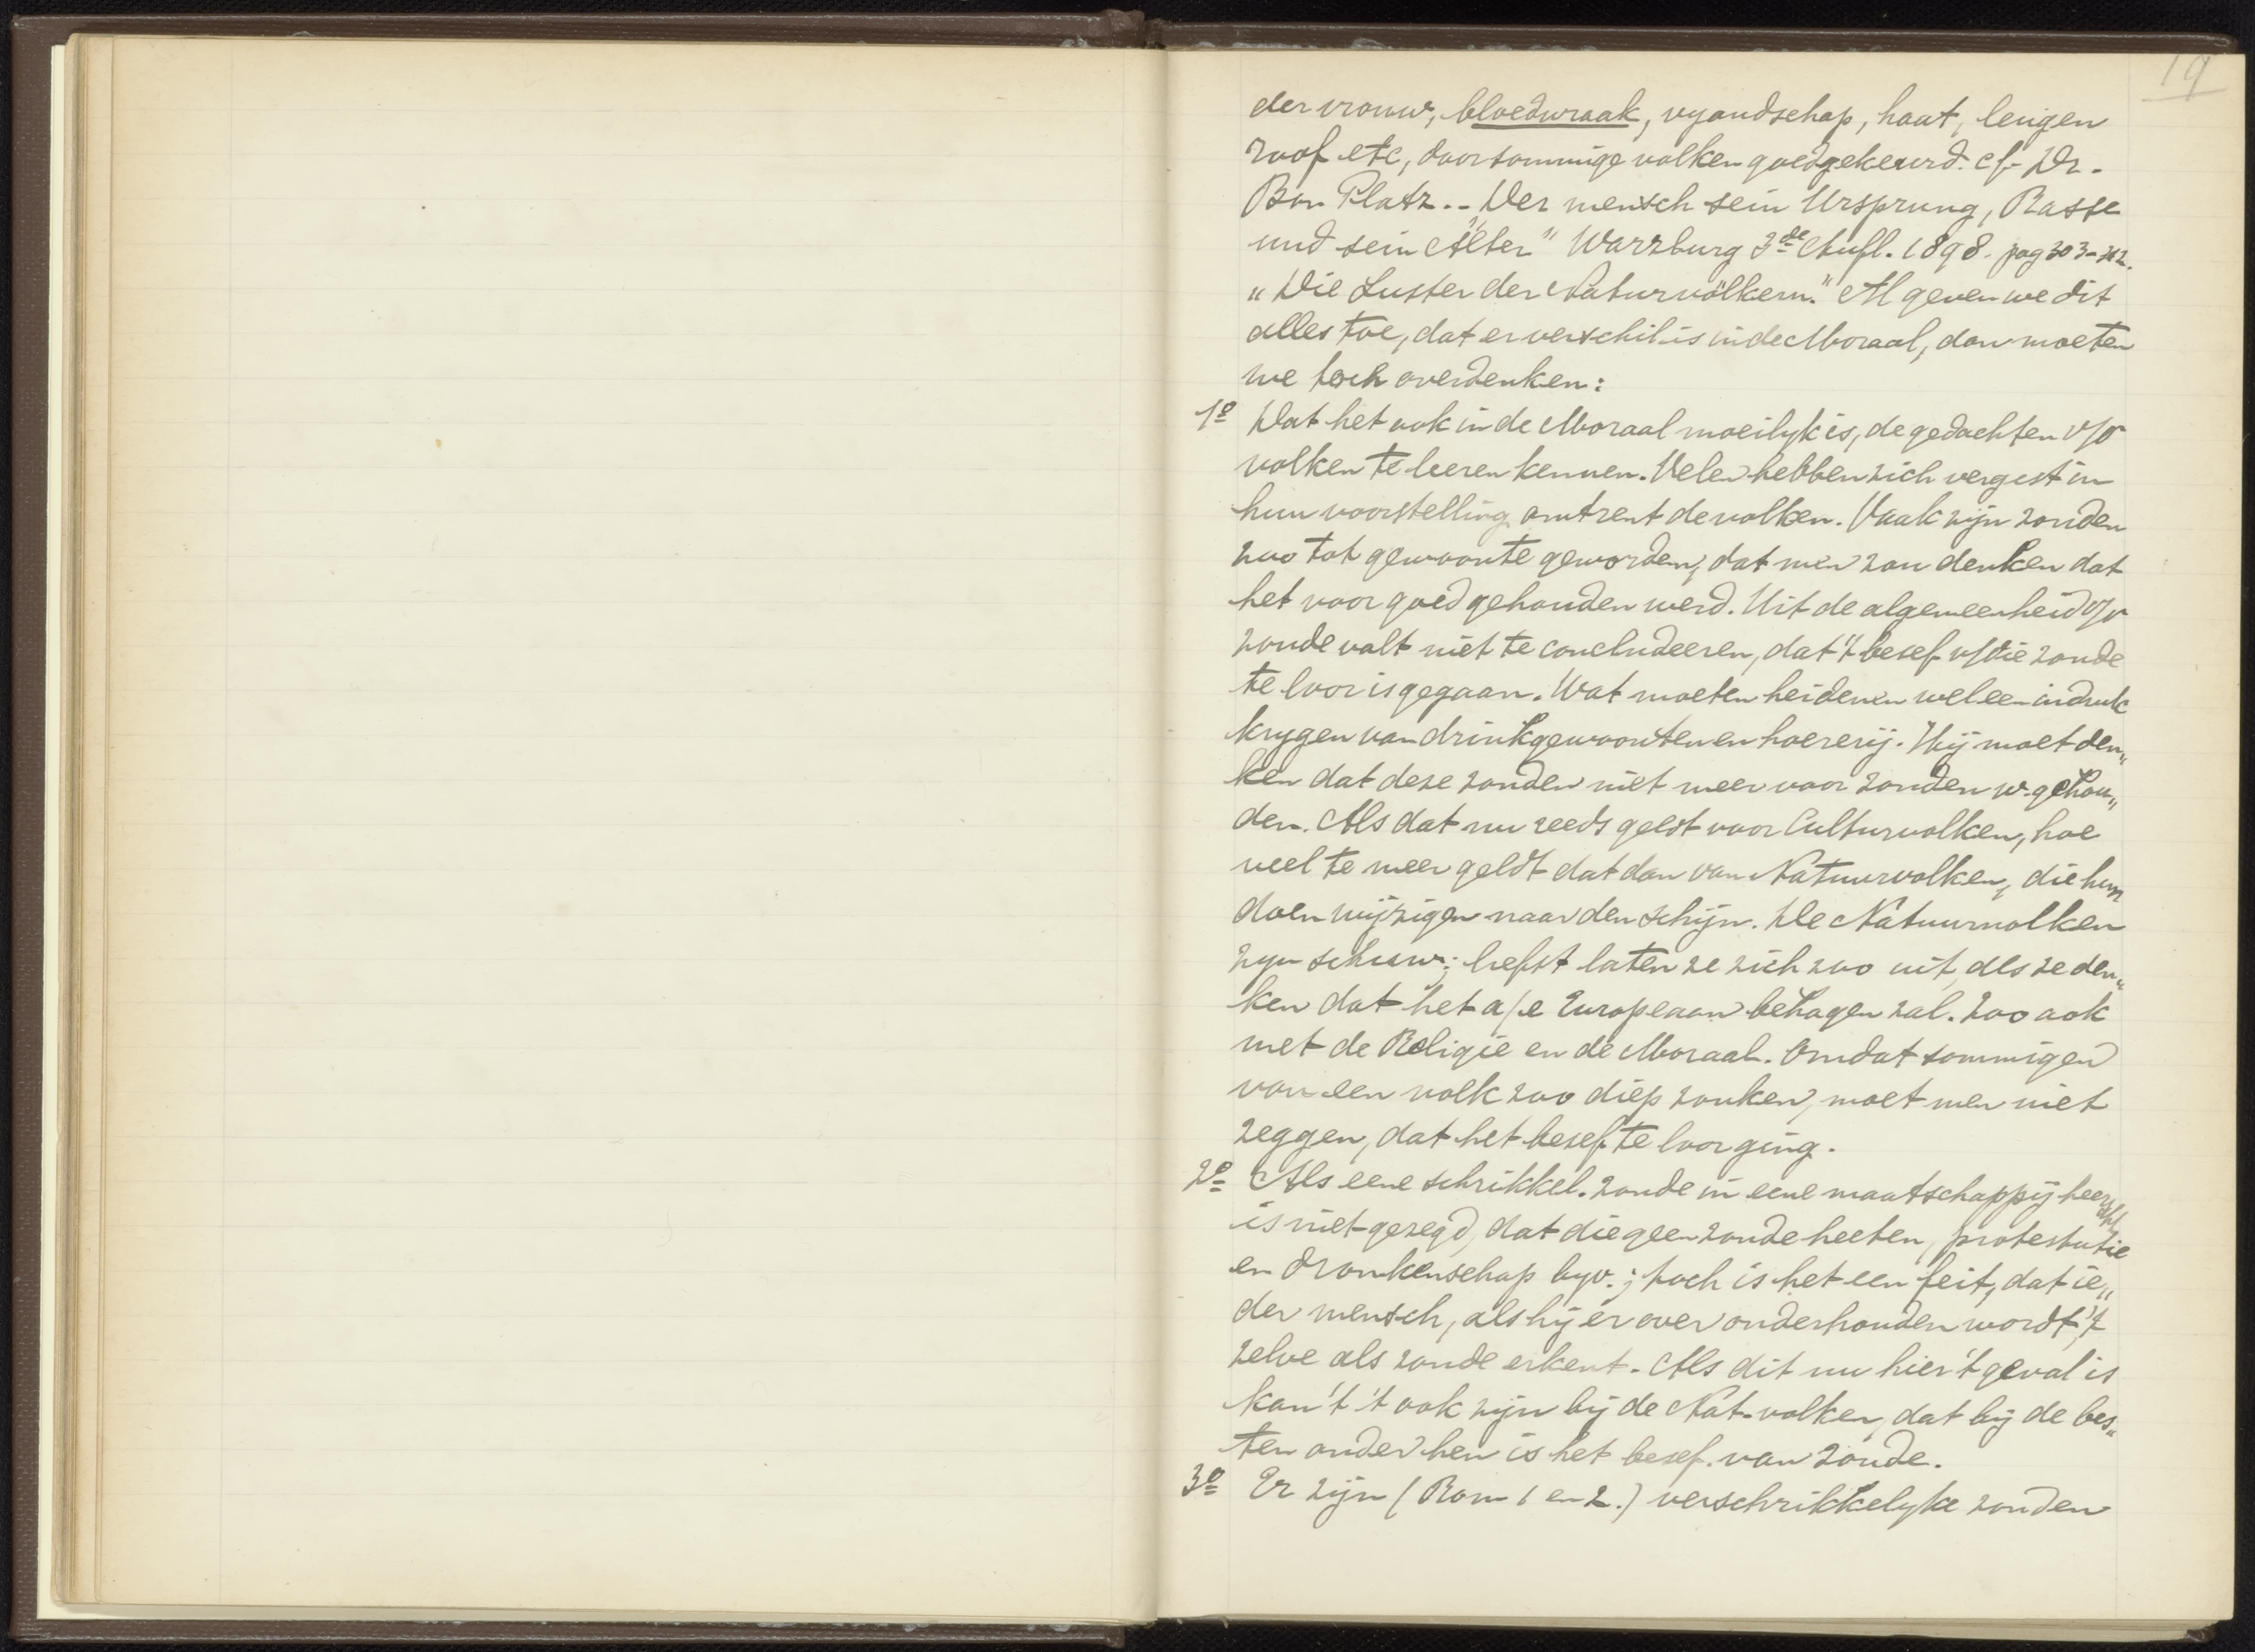 19
der vrouw, bloedwraak, vyandschap, haat, leugen
roof etc, door sommige volken goedgekeurd. cf. Dr.
Bon Platz.. Der mensch sein Ursprung, Rasse
und sein Alter" Warzburg 3de Aufl. 1898. pag 303-312.
"Die Laster der Naturvölkern." Al geven we dit
alles toe, dat er verschil is in de Moraal, dan moeten
we toch overdenken:
1o Dat het ook in de Moraal moeilyk is, de gedachten v/d
volken te leeren kennen. Velen hebben zich vergist in
hun voorstelling omtrent de volken. Vaak zijn zonden
zoo tot gewoonte geworden, dat men zou denken dat
het voor goed gehouden werd. Uit de algemeenheid v/d
zonde valt niet te concludeeren, dat 't besef v/die zonde
te loor is gegaan. Wat moeten heidenen wel een indruk
krygen van drinkgewoonten en hoererij. Hij moet den„
ken dat deze zonden niet meer voor zonden w. gehou„
den. Als dat nu reeds geldt voor Cultuurvolken, hoe
veel te meer geldt dat dan van Natuurvolken, die hun
doen wijzigen naar den schijn. De Natuurvolken
zyn schuw; liefst laten ze zich zoo uit, als ze den„
ken dat het a/e Europeaan behagen zal. Zoo ook
met de Religie en de Moraal. Omdat sommigen
van een volk zoo diep zonken, moet men niet
zeggen, dat het besef te loor ging.
2o Als eene schrikkel. zonde in eene maatschappij heerscht
is niet gezegd, dat die geen zonde heeten, protestutie
en dronkenschap byv.; toch is het een feit, dat ie„
der mensch, als hij er over onderhouden wordt, 't
zelve als zonde erkent. Als dit nu hier 't geval is
kan 't 't ook zijn bij de Nat. volken, dat bij de bes„
ten onder hen is het besef. van zonde.
3o Er zijn (Rom 1 en 2.) verschrikkelyke zonden